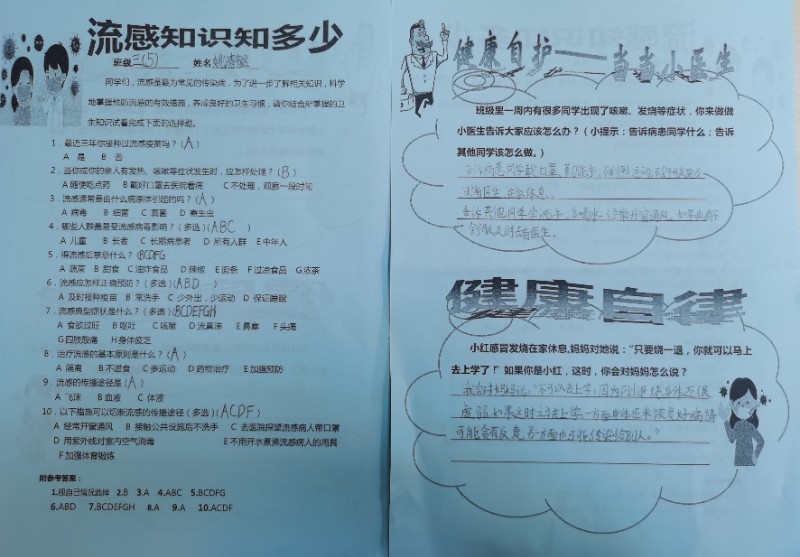 流感知识知多少
班级 三(5) 姓名
同学们，流感是最为常见的传染病，为了进一步了解相关知识，科学
地掌握预防流感的有效措施，养成良好的卫生习惯，请你结合所掌握的卫
生知识试着完成下面的选择题。
1．最近三年你接种过流感疫苗吗？（A）
A 是 B 否
2．当你或你的亲人有发热、咳嗽等症状发生时，应怎样处理？（B）
A 随便吃点药 B 戴好口罩去医院看病 C 不处理，观察一段时间
3．流感通常是由什么病原体引起的吗？（A）
A 病毒 B 细菌 C 真菌 D 寄生虫
4．哪些人群最易受流感病毒影响？（多选）（ABC）
A 儿童 B 长者 C 长期病患者 D 所有人群 E 中年人
5．得流感后禁忌什么？ BCDFG
A 蔬菜 B 甜食 C 油炸食品 D 辣椒 E 面条 F 过凉食品 G 浓茶
6．流感应怎样正确预防？（多选）（ABD）
A 及时接种疫苗 B 常洗手 C 少外出，少运动 D 保证睡眠
7．流感典型症状是什么？（多选）（BCDEFGH）
A 食欲过旺 B 呕吐 C 咳嗽 D 流鼻涕 E 鼻塞 F 头痛
G 四肢酸痛 H 身体疲乏
8．治疗流感的基本原则是什么？（A）
A 隔离 B 不进食 C 多运动 D 药物治疗 E 加强预防
9．流感的传播途径是（A）
A 飞沫 B 血液 C 体液
10．以下措施可以切断流感的传播途径（多选）（ACDF）
A 经常开窗通风 B 接触公共设施后不洗手 C 去医院探望流感病人带口罩
D 用紫外线对室内空气消毒 E 不用开水煮沸流感病人的用具
F 加强体育锻炼
附参考答案：
1.视自己情况选择 2.B 3.A 4.ABC 5.BCDFG
6.ABD 7.BCDEFGH 8.A 9.A 10.ACDF
健康自护——当当小医生
班级里一周内有很多同学出现了咳嗽、发烧等症状，你来做做
小医生告诉大家应该怎么办？（小提示：告诉病患同学什么；告诉
其他同学该怎么做。）
告诉病患同学戴口罩，勤洗手，
医生，在家休息。
告诉其他同学常洗手，多喝水，经常开窗通风，如果也有不
舒服及时去看医生。
健康自律
小红感冒发烧在家休息,妈妈对她说："只要烧一退，你就可以马上
去上学了！"如果你是小红，这时，你会对妈妈怎么说？
我会对妈妈说："不可以去上学,因为刚退烧身体还很
虚弱,如果这时候去上学,一方面身体还未恢复好,病情
可能会有反复,另一方面也可能传染给别人。"